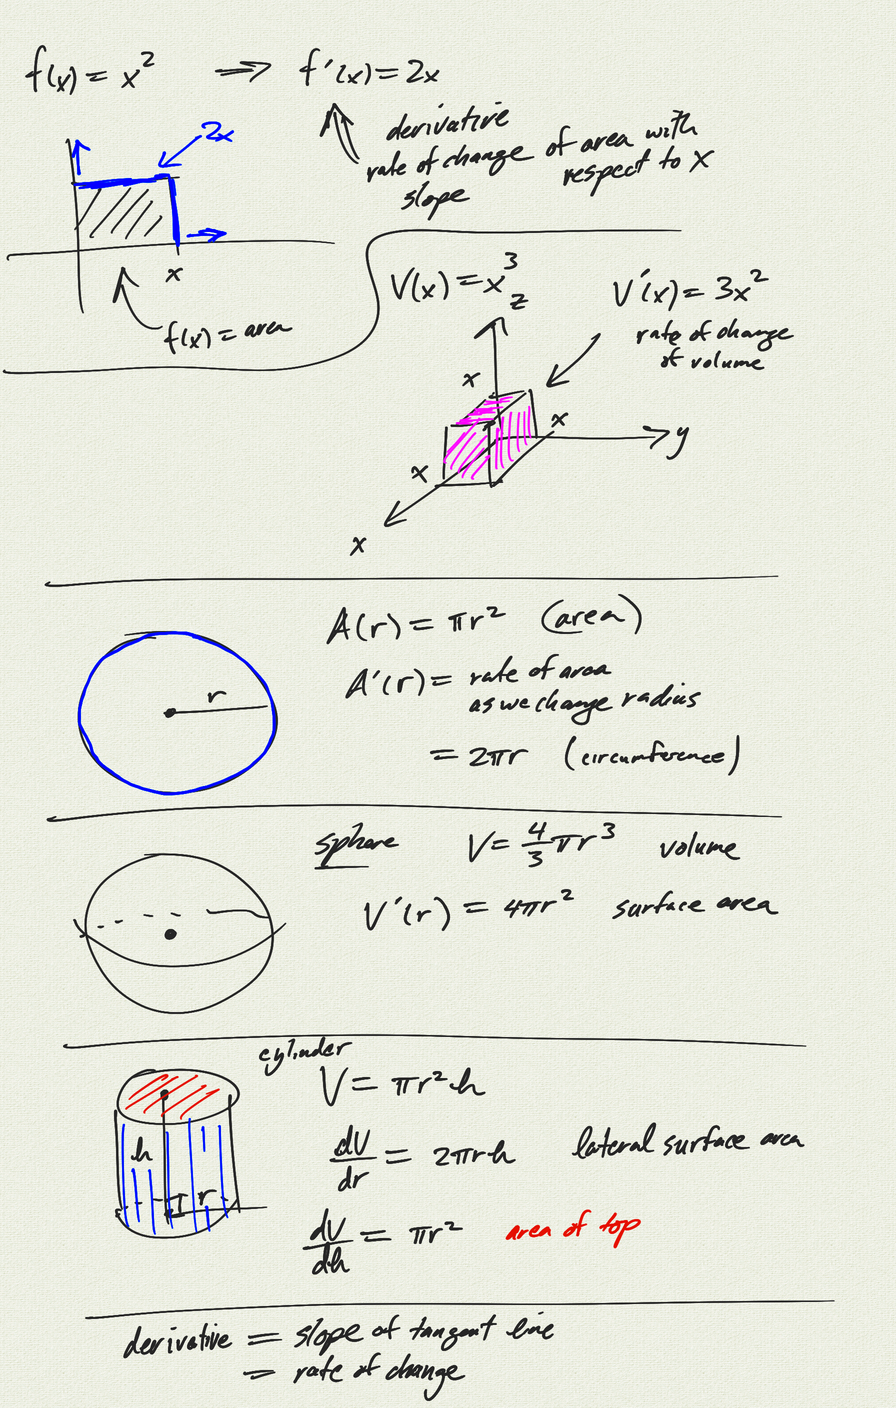 f(x) = x² ⇒ f'(x) = 2x
2x
derivative
rate of change of area with
respect to x
slope
x
f(x) = area
V(x) = x³
V'(x) = 3x²
rate of change
of volume
z
x
x
y
x
x
A(r) = πr² (area)
A'(r) = rate of area
as we change radius
= 2πr (circumference)
r
sphere V = 4/3 πr³ volume
V'(r) = 4πr² surface area
cylinder
V = πr²h
dV/dr = 2πrh lateral surface area
h
r
dV/dh = πr² area of top
derivative = slope of tangent line
= rate of change